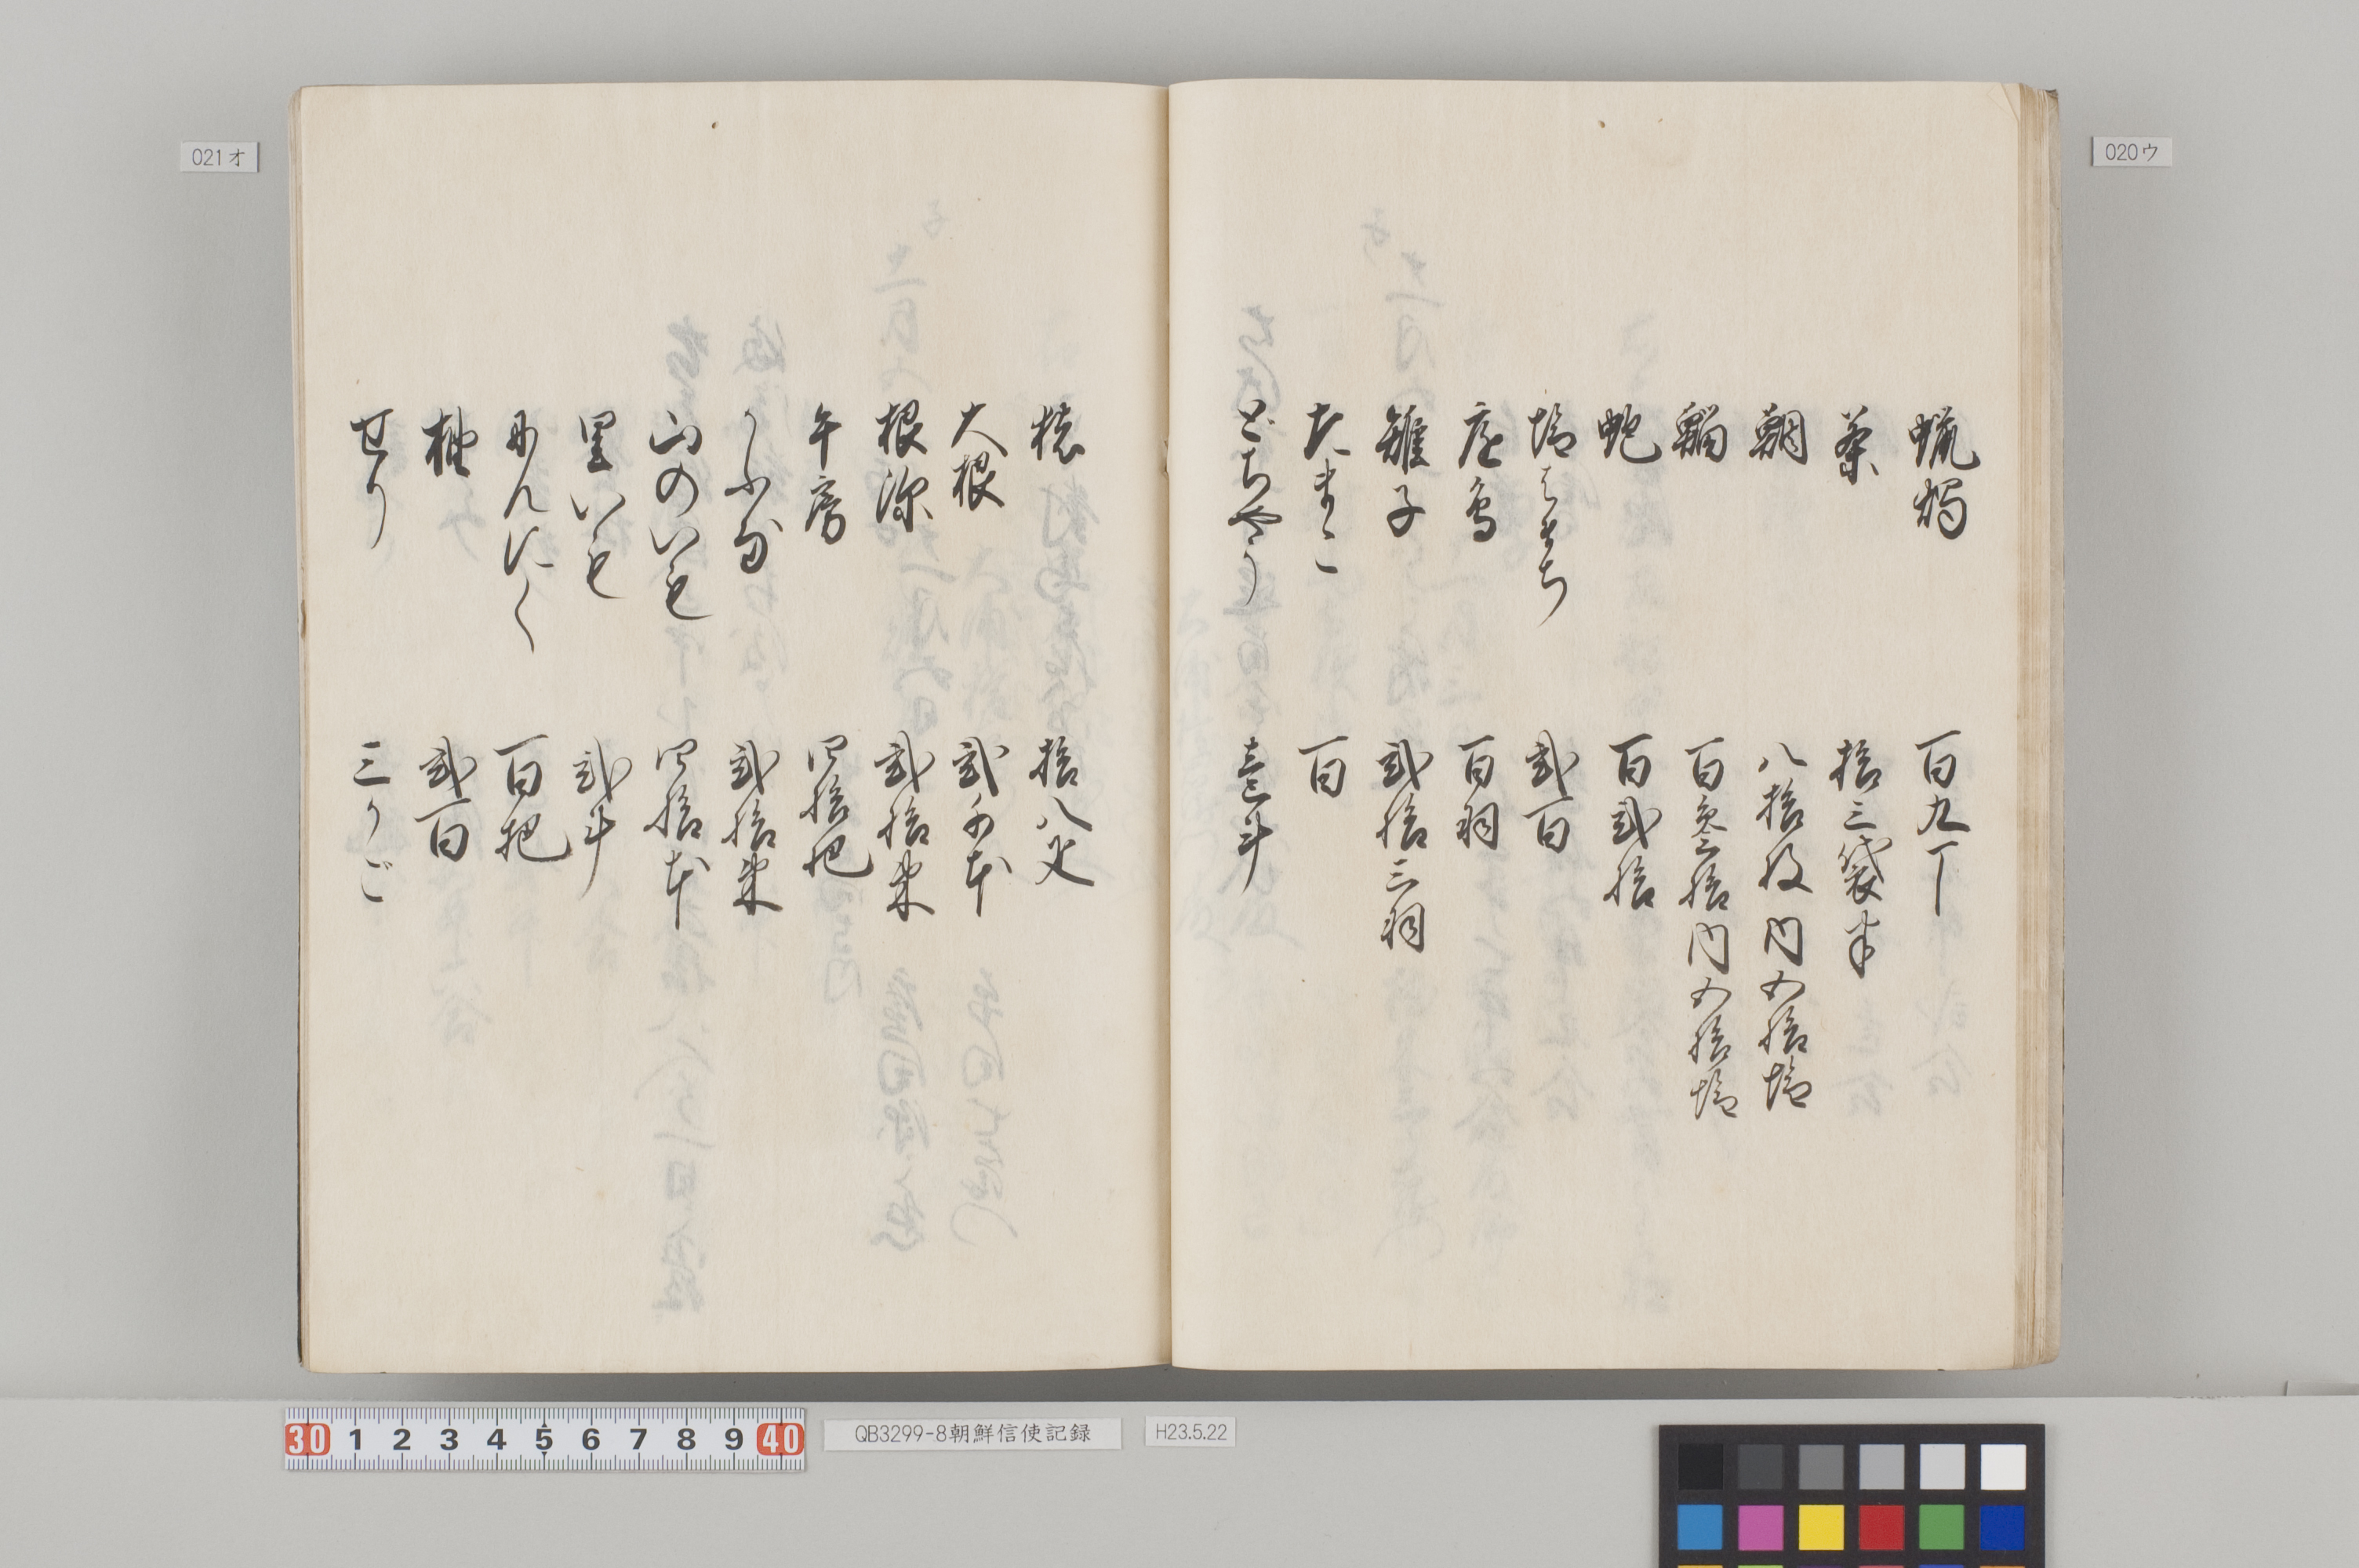 020ウ
蝋燭 百九丁
茶 拾三袋半
鯛 八拾枚内五拾塩
鰡 百參拾内五拾塩
鮑 百弐拾
塩はまち 弐百
庭鳥 百羽
雉子 弐拾三羽
たまこ 百
どちやう 壱斗
021オ
猿 拾八疋
大根 弐千本
根深 弐拾束
午房 四拾把
弐拾束
山のいも 四拾本
里いも 弐斗
にんにく 百把
柚 弐百
せり 三かご
30 1 2 3 4 5 6 7 8 9 40
QB3299-8朝鮮信使記録
H23.5.22